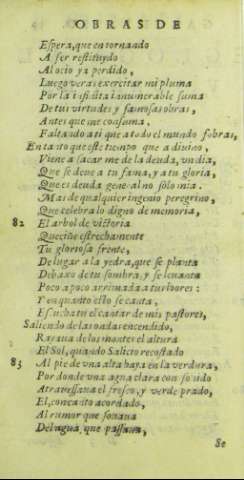 4 OBRAS DE
Espera, que en tornando
A ser restituydo
Al ocio ya perdido,
Luego veras exercitar mi pluma
Por la infinita innumerable suma
De tus virtudes y famosas obras,
Antes que me consuma.
Faltando a ti que a todo el mundo sobras,
En tanto que este tiempo que adiuino,
Viene a sacar me de la deuda, vn dia,
Que se deue a tu fama, y a tu gloria,
Que es deuda general no sólo mia.
Mas de qualquier ingenio peregrino,
Que celebra lo digno de memoria,
82 El arbol de victoria
Que ciñe estrechamente
Tu gloriosa frente,
De lugar a la yedra, que se planta
Debaxo de tu sombra, y se leuanta
Poco a poco arrimada a tus loores:
Y en quanto esto se canta,
Escucha tu el cantar de mis pastores,
Saliendo de las ondas encendido,
Rayaua de los montes el altura
El Sol, quando Salicio recostado
83 Al pie de vna alta haya en la verdura,
Por donde vna agua clara con sonido
Atrauessaua el fresco, y verde prado,
El, con canto acordado,
Al rumor que sonaua
Del agua que passaua,
Se